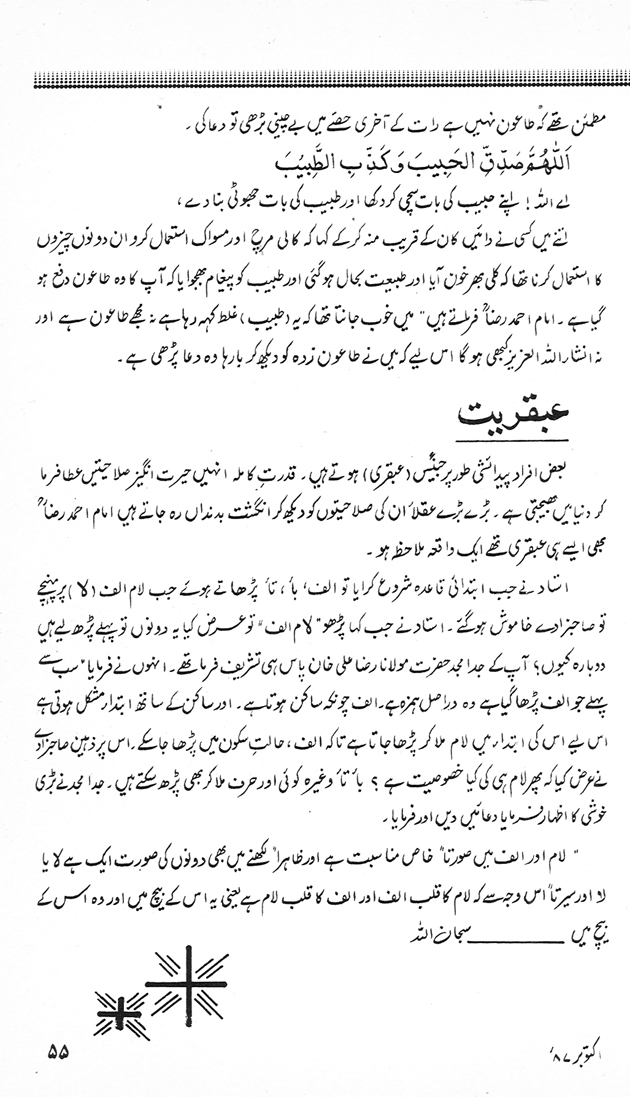 مطمئن تھے کہ طاعون نہیں ہے رات کے آخری حصے میں بے چینی بڑھی تو دعا کی ۔
اَللّٰهُمَّ صَدِّقِ الحَبِيبَ وَ كَذِّبِ الطَّبِيْبَ
اے اللہ ! اپنے حبیب کی بات سچی کر دکھا اور طبیب کی بات جھوٹی بنا دے ،
اتنے میں کسی نے دائیں کان کے قریب منہ کرکے کہا کہ کالی مرچ اور مسواک استعمال کرو ان دونوں چیزوں
کا استعمال کرنا تھا کہ کلی بھر خون آیا اور طبیعت بحال ہوگئی اور طبیب کو پیغام بھجوایا کہ آپ کا وہ طاعون دفع ہو
گیا ہے ۔ امام احمد رضاؒ فرماتے ہیں " میں خوب جانتا تھا کہ یہ (طبیب) غلط کہہ رہا ہے نہ مجھے طاعون ہے اور
نہ انشاء اللہ العزیز کبھی ہو گا اس لیے کہ میں نے طاعون زدہ کو دیکھ کر بارہا وہ دعا پڑھی ہے ۔
عبقریت
بعض افراد پیدائشی طور پر جینیئس (عبقری) ہوتے ہیں ۔ قدرتِ کاملہ انہیں حیرت انگیز صلاحیتیں عطا فرما
کر دنیا میں بھیجتی ہے ۔ بڑے بڑے عقلا ان کی صلاحیتوں کو دیکھ کر انگشت بدنداں رہ جاتے ہیں امام احمد رضاؒ
بھی ایسے ہی عبقری تھے ایک واقعہ ملاحظہ ہو ۔
استاد نے جب ابتدائی قاعدہ شروع کرایا تو الف ، با ، تا پڑھاتے ہوئے جب لام الف (لا) پر پہنچے
تو صاحبزادے خاموش ہوگئے ۔ استاد نے جب کہا پڑھو " لام الف " تو عرض کیا یہ دونوں تو پہلے پڑھ لیے ہیں
دوبارہ کیوں ؟ آپ کے جد امجد حضرت مولانا رضا علی خان پاس ہی تشریف فرما تھے ۔ انہوں نے فرمایا " سب سے
پہلے جو الف پڑھا گیا ہے وہ دراصل ہمزہ ہے ۔ الف چونکہ ساکن ہوتا ہے ۔ اور ساکن کے ساتھ ابتداء مشکل ہوتی ہے
اس لیے اس کی ابتداء میں لام ملا کر پڑھا جاتا ہے تاکہ الف ، حالتِ سکون میں پڑھا جاسکے ۔ اس پر ذہین صاحبزادے
نے عرض کیا کہ پھر لام ہی کی کیا خصوصیت ہے ؟ با ، تا وغیرہ کوئی اور حرف ملا کر بھی پڑھ سکتے ہیں ۔ جد امجد نے بڑی
خوشی کا اظہار فرمایا دعائیں دیں اور فرمایا ۔
" لام اور الف میں صورتاً خاص مناسبت ہے اور ظاہراً لکھنے میں بھی دونوں کی صورت ایک ہے لا یا
لا اور سیرتاً اس وجہ سے کہ لام کا قلب الف اور الف کا قلب لام ہے یعنی یہ اس کے بیچ میں اور وہ اس کے
بیچ میں ـــــــــ سبحان اللہ
اکتوبر ۸۷ء
۵۵